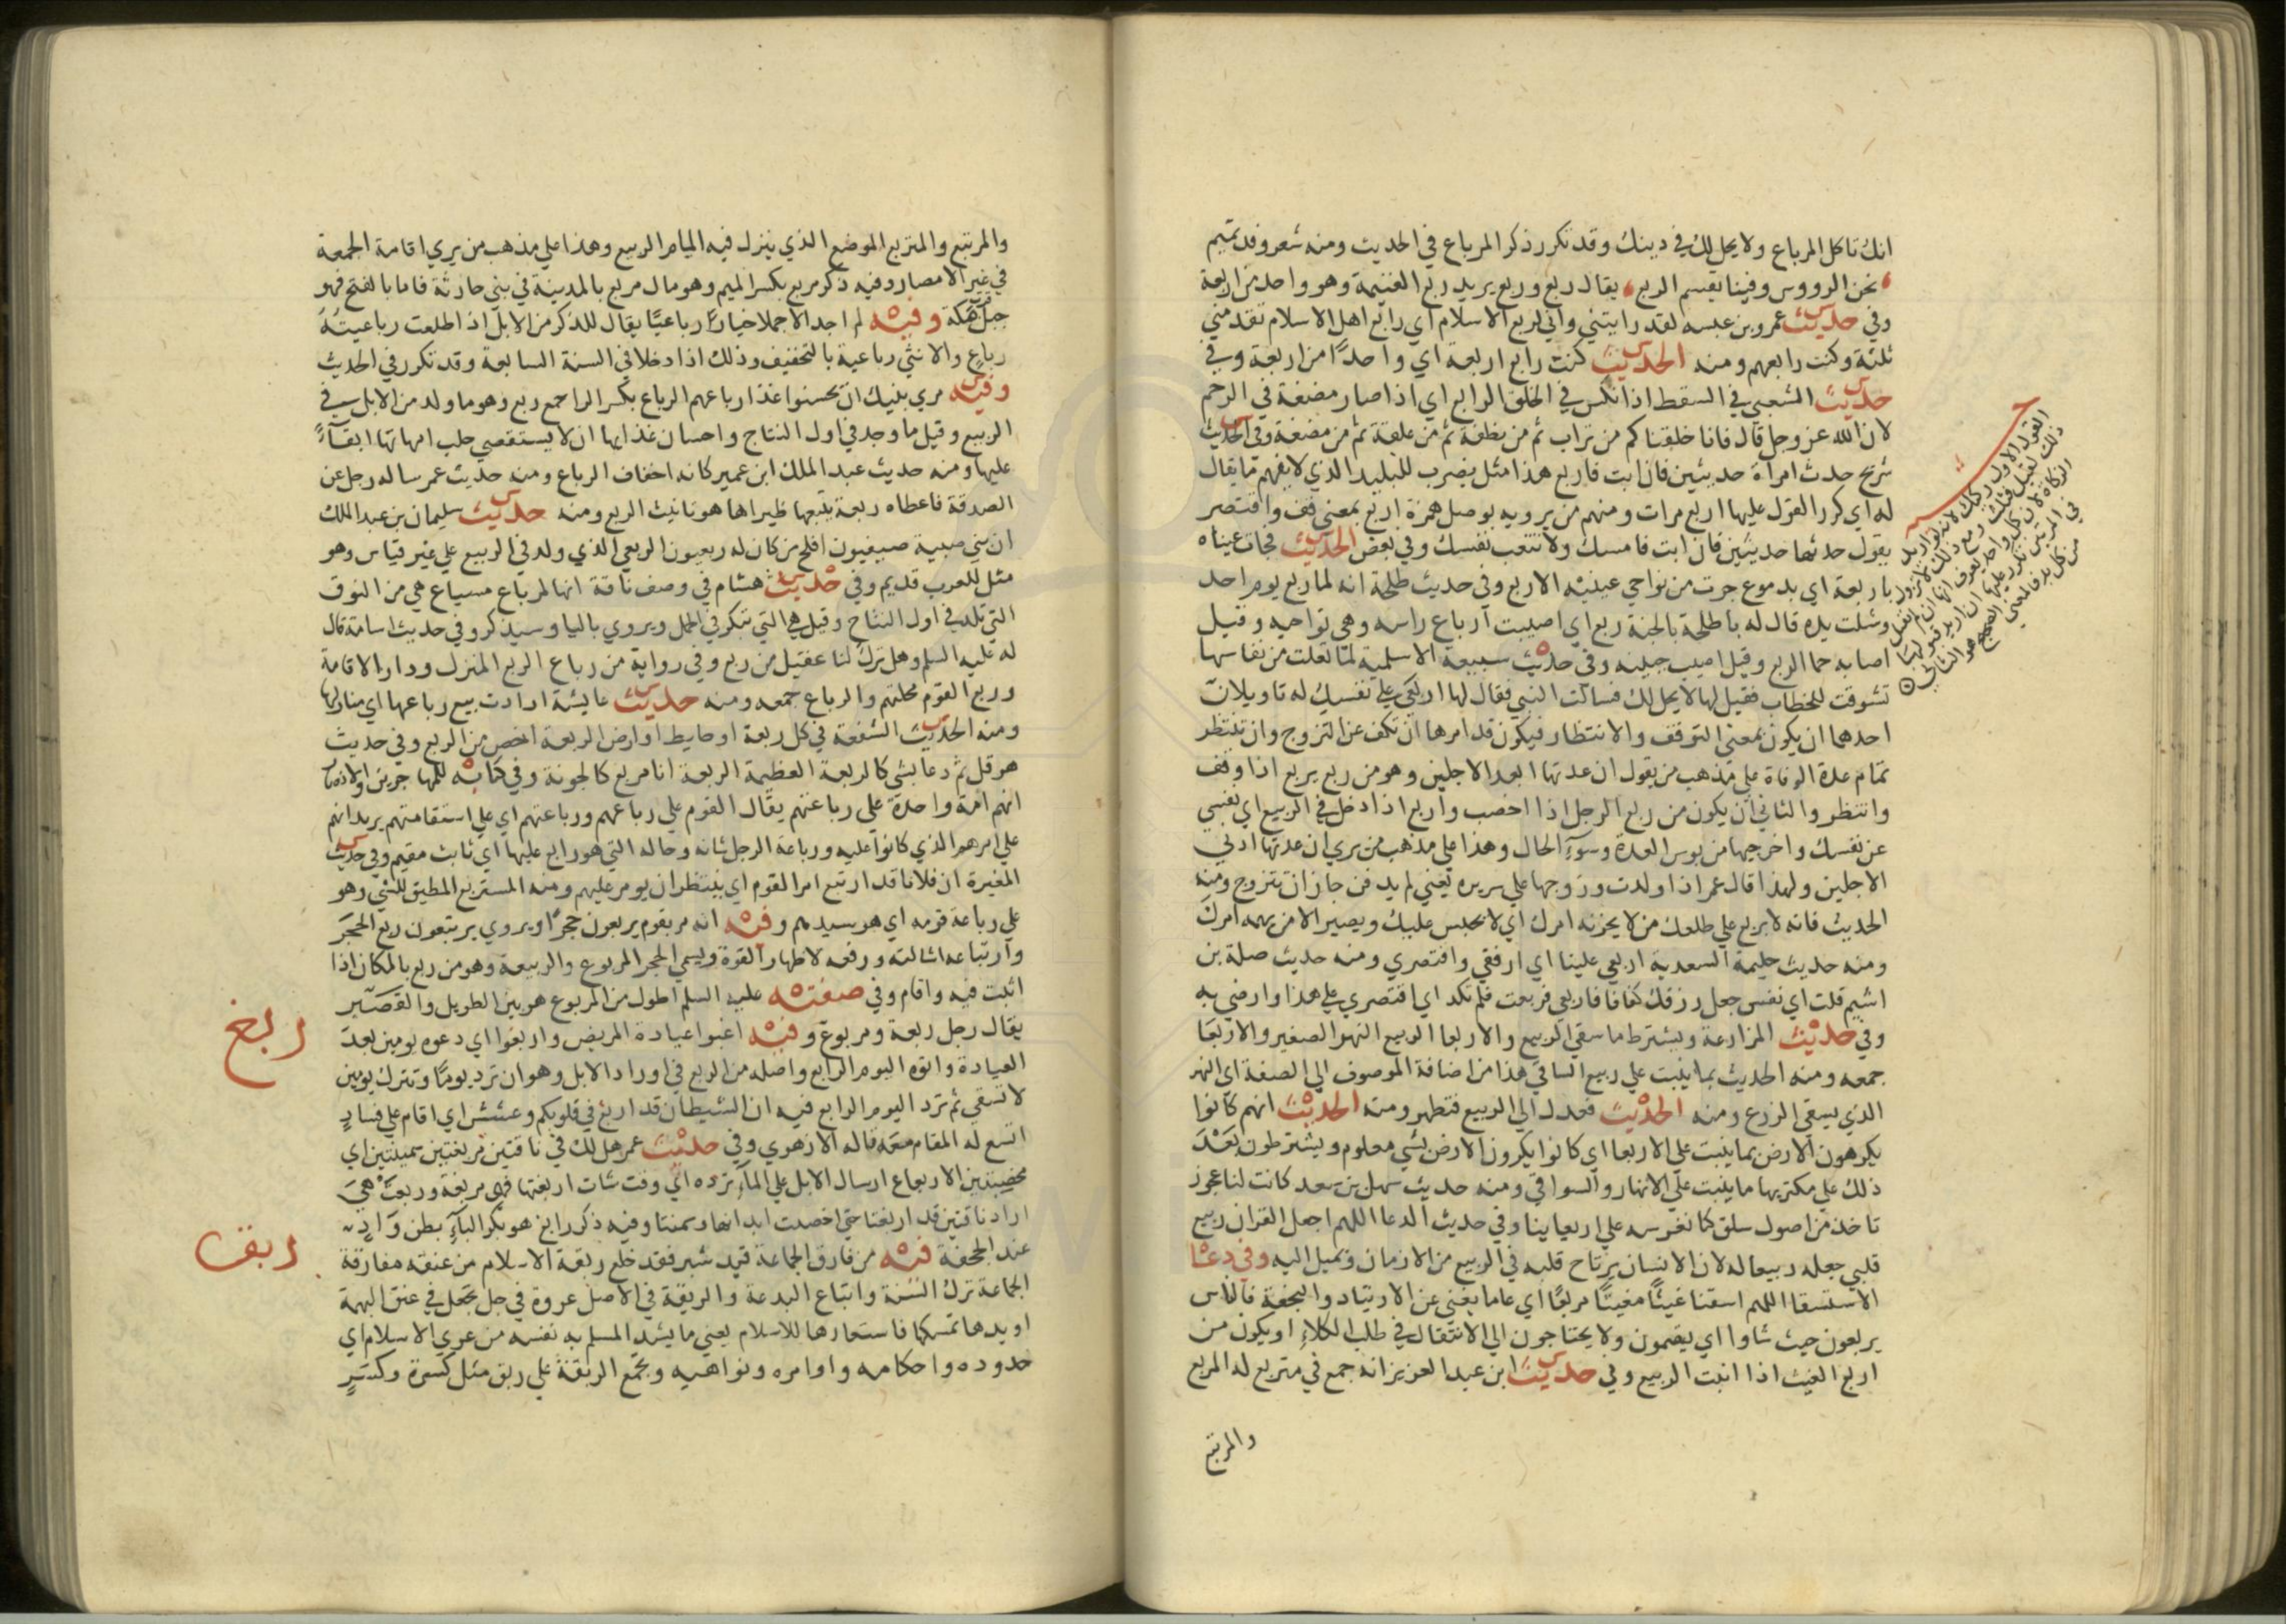 انك تاكل المرباع ولا يحل لك في دينك وقد تكرر ذكر المرباع في الحديث ومنه شعر وفد تميم
نحن الرووس وفينا يقسم الربع يقال ربع وربع يريد ربع الغنيمة وهو واحد من اربعة
وفي حديث عمرو بن عبسه لقد رايتني واني لربع الاسلام اي رابع اهل الاسلام تقدمني
ثلثة وكنت رابعهم ومنه الحديث كنت رابع اربعة اي واحدًا من اربعة وفي
حديث الشعبي في السقط اذا نكس في الخلق الرابع اي اذا صار مضغة في الرحم
لان الله عز وجل قال فانا خلقناكم من تراب ثم من نطفة ثم من علقة ثم من مضغة وفي الحديث
شريح حدث امراة حديثين فان ابت فاربع هذا مثل يضرب للبليد الذي لا يفهم ما يقال
له اي كرر القول عليها اربع مرات ومنهم من يرويه بوصل همزة اربع بمعنى قف واقتصر
يقول حدثها حديثين فان ابت فامسك ولا تتعب نفسك وفي بعض الحديث فجات عيناه
باربعة اي بدموع جرت من نواحي عينيه الاربع وفي حديث طلحة انه لما ربع يوم احد
وشلت يده قال له باطلحة بالجنة ربع اي اصيبت ارباع راسه وهي نواحيه وقيل
اصابه حما الربع وقيل اصيب جبينه وفي حديث سبيعه الاسلمية لما تعلت من نفاسها
تشوفت للخطاب فقيل لها لا يحل لك فسالت النبي فقال لها اربعي على نفسك له تاويلان
احدهما ان يكون بمعنى التوقف والانتظار فيكون قد امرها ان تكف عن التزوج وان تنتظر
تمام عدة الوفاة على مذهب من يقول ان عدتها ابعد الاجلين وهو من ربع يربع اذا وقف
وانتظر والثاني ان يكون من ربع الرجل اذا اخصب واربع اذا دخل في الربيع اي نفسي
عن نفسك واخرجيها من بوس العدة وسوء الحال وهذا على مذهب من يري ان عدتها ادني
الاجلين ولهذا قال عمر اذا ولدت وزوجها على سريره يعني لم يدفن جاز ان تتزوج ومنه
الحديث فانه لا يربع على ظلعك من لا يحزنه امرك اي لا يحتبس عليك ويصبر الا من يهمه امرك
ومنه حديث حليمة السعدية اربعي علينا اي ارفقي واقتصري ومنه حديث صلة بن
اشيم قلت اي نفس جعل رزقك كفافا فاربعي فربعت فلم تكد اي اقتصري على هذا وارضي به
وفي حديث المزارعة ويشترط ما سقي الربيع والاربعا الربيع النهر الصغير والاربعا
جمعه ومنه الحديث بما ينبت على ربيع الساقي هذا من اضافة الموصوف الى الصفة اي النهر
الذي يسقي الزرع ومنه الحديث فعدل الي الربيع فتطهر ومنه الحديث انهم كانوا
يكرهون الارض بما ينبت على الاربعا اي كانوا يكرون الارض بشي معلوم ويشترطون بعد
ذلك على مكتريها ما ينبت على الانهار والسواقي ومنه حديث سهل بن سعد كانت لنا عجوز
تاخذ من اصول سلق كنا نغرسه على اربعاينا وفي حديث الدعا اللهم اجعل القران ربيع
قلبي جعله ربيعا له لان الانسان يرتاح قلبه في الربيع من الازمان ويميل اليه وفي دعا
الاستسقا اللهم اسقنا غيثًا مغيثًا مربعًا اي عاما يغني عن الارتياد والنجعة فالناس
يربعون حيث شاوا اي يقيمون ولا يحتاجون الي الانتقال في طلب الكلاء او يكون من
اربع الغيث اذا انبت الربيع وفي حديث ابن عبد العزيز انه جمع في متربع له المربع
والمرتبع
القول الاول
والمرتبع والمتربع الموضع الذي ينزل فيه ايام الربيع وهذا على مذهب من يري اقامة الجمعة
في غير الامصار وفيه ذكر مربع بكسر الميم وهو مال مربع بالمدينة في بني حارثة فاما بالفتح فهو
جبل بمكة وفيه لم اجد الا جملا خيارًا رباعيًا يقال للذكر من الابل اذا طلعت رباعيته
رباع والانثي رباعية بالتخفيف وذلك اذا دخلا في السنة السابعة وقد تكرر في الحديث
وفيه مري بنيك ان يحسنوا غذا رباعهم الرباع بكسر الرا جمع ربع وهو ما ولد من الابل في
الربيع وقيل ما ولد في اول النتاج واحسان غذايها ان لا يستقصي حلب امهاتها ابقاءً
عليها ومنه حديث عبد الملك ابن عمير كانه اخفاف الرباع ومنه حديث عمر ساله رجل عن
الصدقة فاعطاه ربعة يتبعها ظيراها هو تانيث الربع ومنه حديث سليمان بن عبد الملك
ان بني صبية صيفيون افلح من كان له ربعيون الربعي الذي ولد في الربيع على غير قياس وهو
مثل للعرب قديم وفي حديث هشام في وصف ناقة انها لمرباع مسياع هي من النوق
التي تلد في اول النتاج وقيل هي التي تبكر في الحمل ويروي باليا وسيذكر وفي حديث اسامة قال
له عليه السلم وهل ترك لنا عقيل من ربع وفي رواية من رباع الربع المنزل ودار الاقامة
وربع القوم محلتهم والرباع جمعه ومنه حديث عايشة ارادت بيع رباعها اي منازلها
ومنه الحديث الشفعة في كل ربعة او حايط او ارض الربعة اخص من الربع وفي حديث
هرقل ثم دعا بشي كالربعة العظيمة الربعة انا مربع كالجونة وفي كتابه للمهاجرين والانصار
انهم امة واحدة على رباعتهم يقال القوم على رباعهم ورباعتهم اي على استقامتهم يريد انهم
على امرهم الذي كانوا عليه ورباعة الرجل شانه وحاله التي هو رابع عليها اي ثابت مقيم وفي حديث
المغيرة ان فلانا قد ارتبع امر القوم اي ينتظر ان يومر عليهم ومنه المستربع المطيق للشي وهو
على رباعة قومه اي هو سيدهم وفيه انه مر بقوم يربعون حجرًا ويروي يرتبعون ربع الحجر
وارتباعه اشالته ورفعه لاظهار القوة ويسمي الحجر المربوع والربيعة وهو من ربع بالمكان اذا
اثبت فيه واقام وفي صفته عليه السلم اطول من المربوع هو بين الطويل والقصير
يقال رجل ربعة ومربوع وفيه اغبوا عيادة المريض واربعوا اي دعوه يومين بعد
العيادة واتوه اليوم الرابع واصله من الربع في اوراد الابل وهو ان ترد يومًا وتترك يومين
لا تسقي ثم ترد اليوم الرابع فيه ان الشيطان قد اربغ في قلوبكم وعشش اي اقام على فساد
ربغ
اتسع له المقام معه قاله الازهري وفي حديث عمر هل لك في ناقتين مربغتين سمينتين اي
مخصبتين الارباغ ارسال الابل على الماء ترده اي وقت شات اربغتها فهي مربغة وربغت هي
اراد ناقتين قد اربغتا حتي اخصبت ابدانهما وسمنتا وفيه ذكر رابغ هو بكسر الباء بطن واد
عند الجحفة فيه من فارق الجماعة قيد شبر فقد خلع ربقة الاسلام من عنقه مفارقة
ربق
الجماعة ترك السنة واتباع البدعة والربقة في الاصل عروة في حبل تجعل في عنق البهمة
او يدها تمسكها فاستعارها للاسلام يعني ما يشد المسلم به نفسه من عري الاسلام اي
حدوده واحكامه واوامره ونواهيه ويجمع الربقة على ربق مثل كسرة وكسر